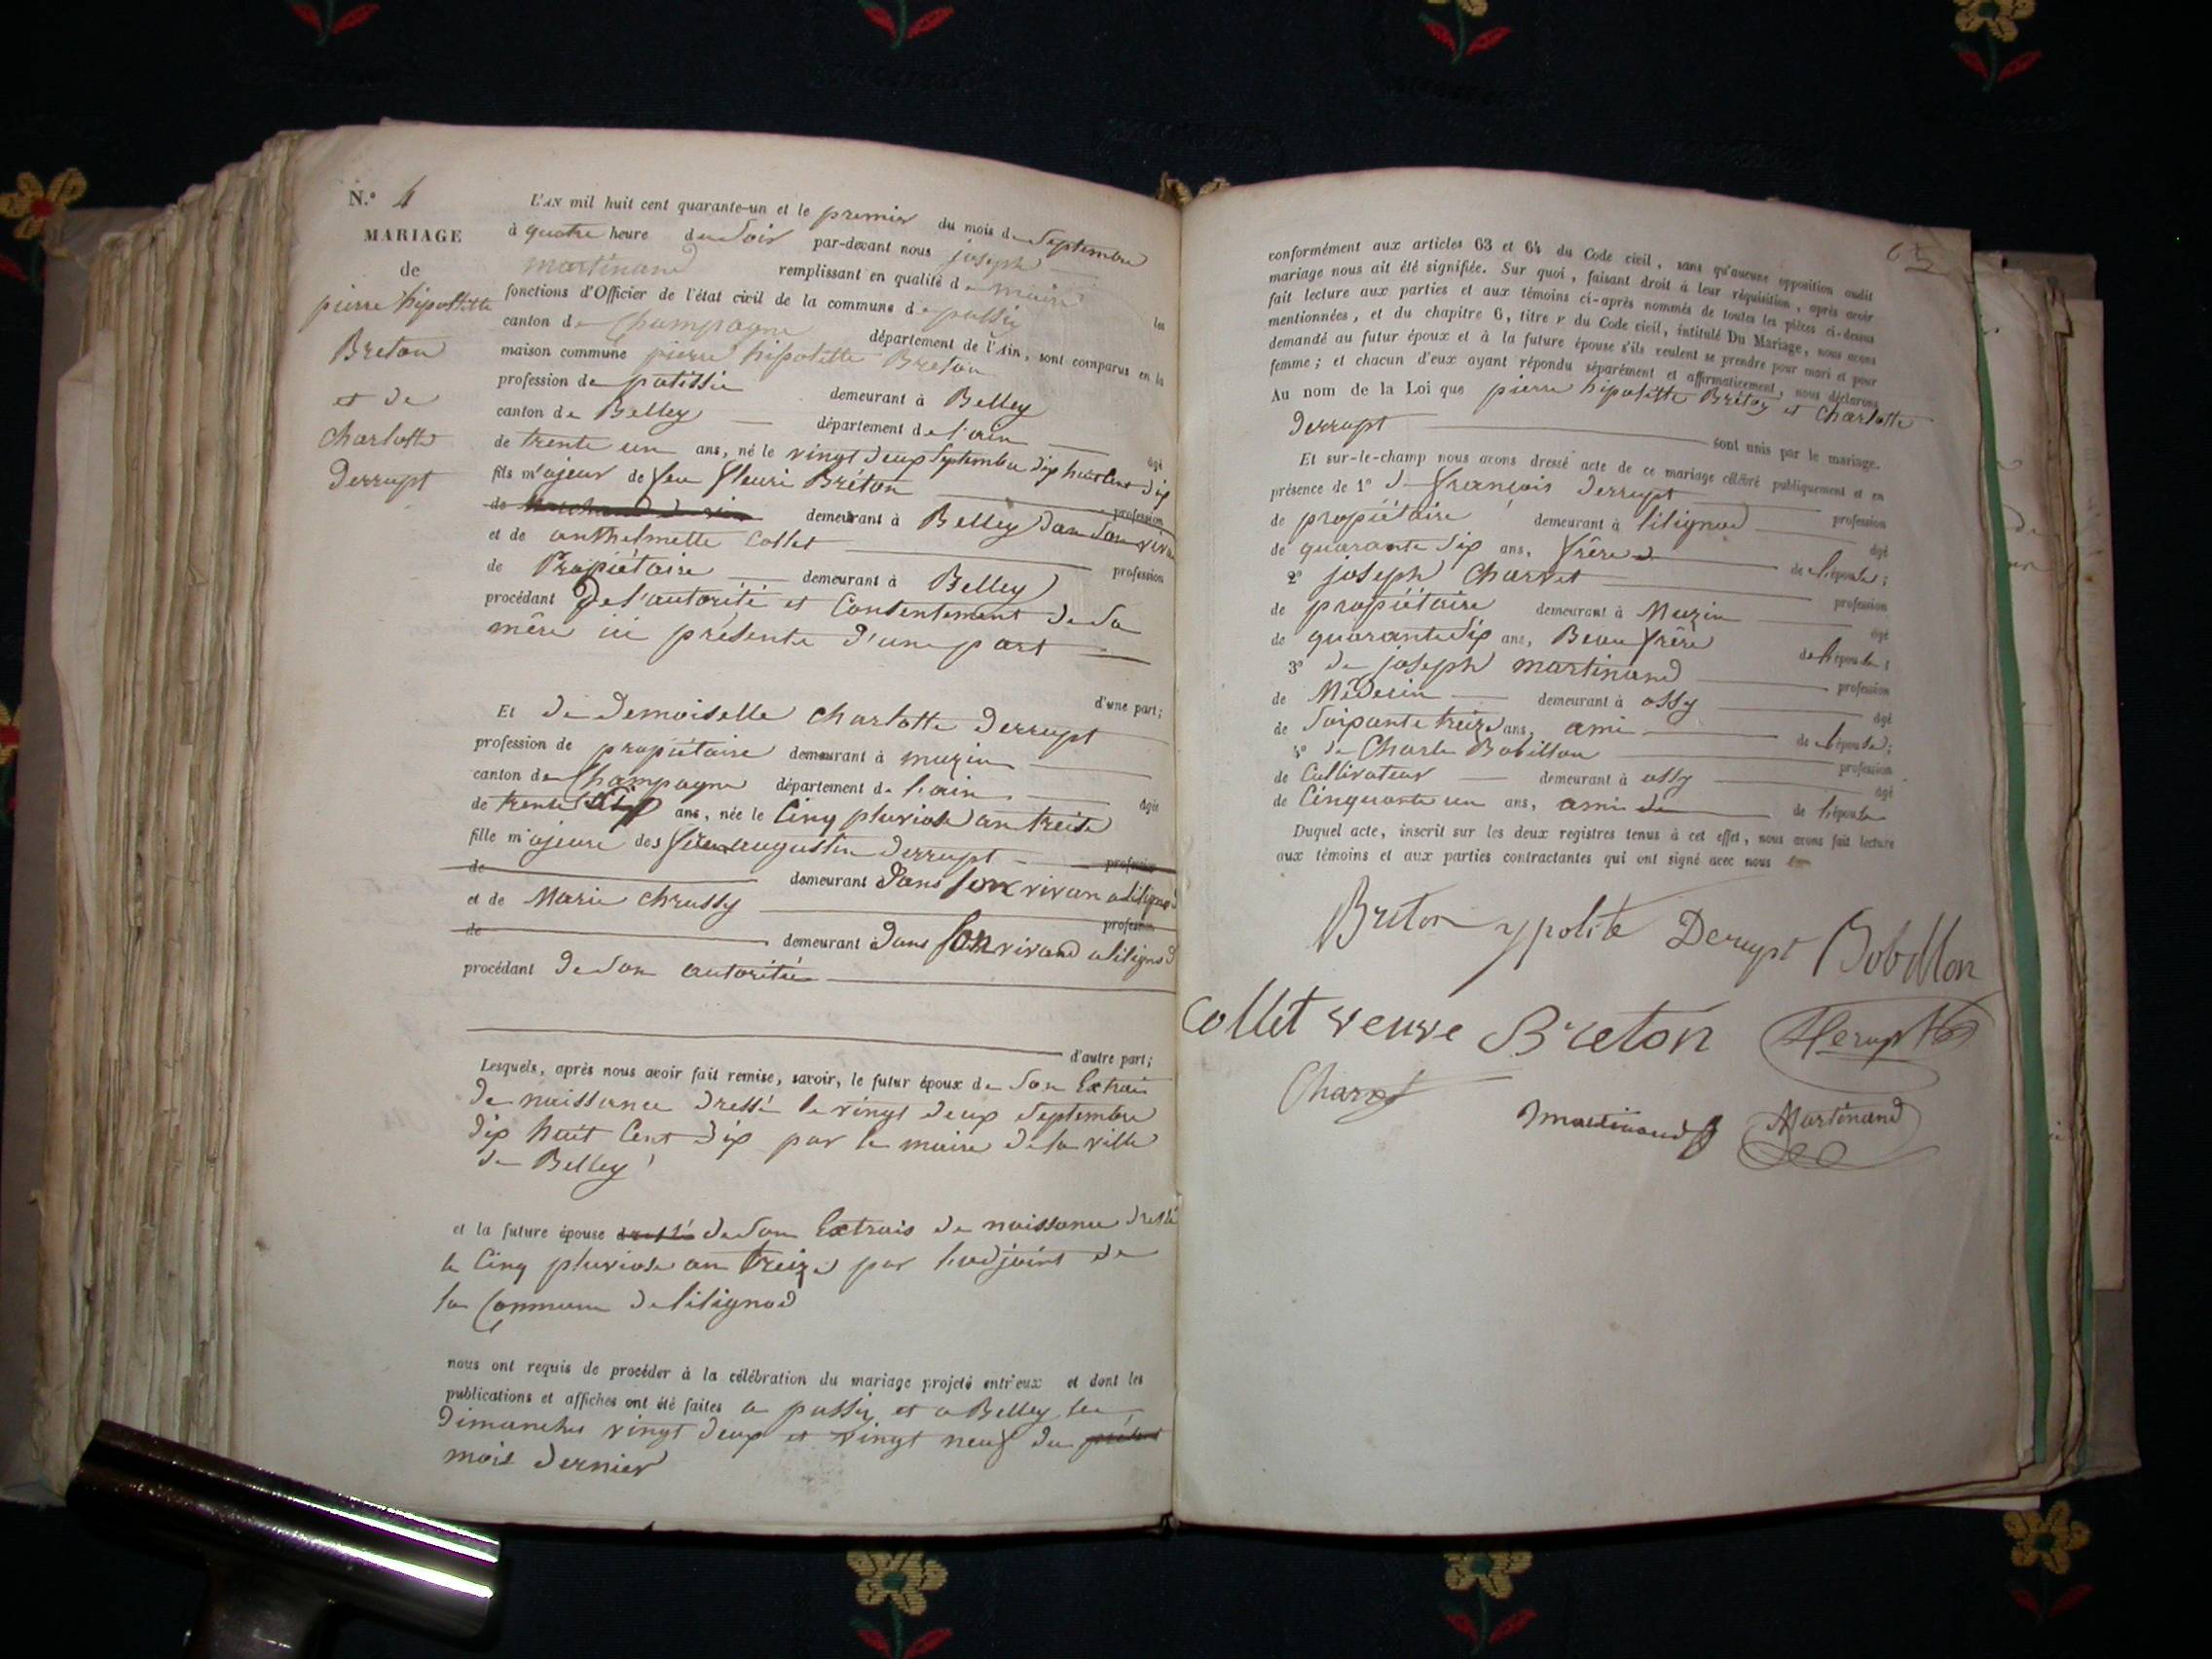 N.° 4
MARIAGE
de
pierre hipolitte
Breton
et de
Charlotte
Derrupt
L'AN mil huit cent quarante-un et le premier du mois de Septembre
à quatre heure du Soir par-devant nous joseph
martinand remplissant en qualité de maire les
fonctions d'Officier de l'état civil de la commune de passin
canton de Champagne département de l'Ain, sont comparus en la
maison commune pierre hipolitte Breton
profession de patissie demeurant à Belley
canton de Belley département de l'ain âgé
de trente un ans, né le vingt deux Septembre dix huit Cent dix
fils majeur de feu fleuri Bréton profession
de demeurant à Belley dan Son viva
et de anthelmette Collet profession
de Propiétaire demeurant à Belley
procédant De l'autorité et Consentement de Sa
mère ici présente d'une part
d'une part;
Et de Demoiselle Charlotte Derrupt
profession de propiétaire demeurant à muzin
canton de Champagne département de l'ain âgée
de trente Six ans, née le Cinq pluviose an treize
fille majeure des feu augustin Derrupt profession
de demeurant Dans Son vivan a lilignod
et de Marie Chrussy profession
de demeurant Dans Son vivand a lilignod
procédant De Son autoritée
d'autre part;
Lesquels, après nous avoir fait remise, savoir, le futur époux de Son Extrai
De naissance Dressé le vingt Deux Septembre
Dix huit Cent Dix par le maire De la ville
De Belley
et la future épouse dressé de Son Extrais de naissance Dressé
le Cinq pluviose an treize par l'adjoint de
la Commune De lilignod
nous ont requis de procéder à la célébration du mariage projeté entr'eux et dont les
publications et affiches ont été faites a passin et a Belley les
Dimanches vingt Deux et vingt neuf du présent
mois Dernier
65
conformément aux articles 63 et 64 du Code civil, sans qu'aucune opposition audit
mariage nous ait été signifiée. Sur quoi, faisant droit à leur réquisition, après avoir
fait lecture aux parties et aux témoins ci-après nommés de toutes les pièces ci-dessus
mentionnées, et du chapitre 6, titre v du Code civil, intitulé Du Mariage, nous avons
demandé au futur époux et à la future épouse s'ils veulent se prendre pour mari et pour
femme; et chacun d'eux ayant répondu séparément et affirmativement, nous déclarons
Au nom de la Loi que pierre hipolitte Bréton et Charlotte
Derrupt sont unis par le mariage.
Et sur-le-champ nous avons dressé acte de ce mariage célébré publiquement et en
présence de 1° d françois Derrupt profession
de propiétaire demeurant à lilignod âgé
de quarante Six ans, frère de l'épouse;
2° joseph Charvet profession
de propiétaire demeurant à Muzin âgé
de quarante Six ans, Beau frère de l'épouse;
3° de joseph martinand profession
de Médecin demeurant à ossy âgé
de Soixante treize ans, ami de l'épouse;
4° de Charle Bobillon profession
de Cultivateur demeurant à ossy âgé
de Cinquante un ans, ami de de l'épouse
Duquel acte, inscrit sur les deux registres tenus à cet effet, nous avons fait lecture
aux témoins et aux parties contractantes qui ont signé avec nous
Breton ypolite Derupt Bobillon
Collet veuve Breton Derupt
Charvet
Martinand Martinand